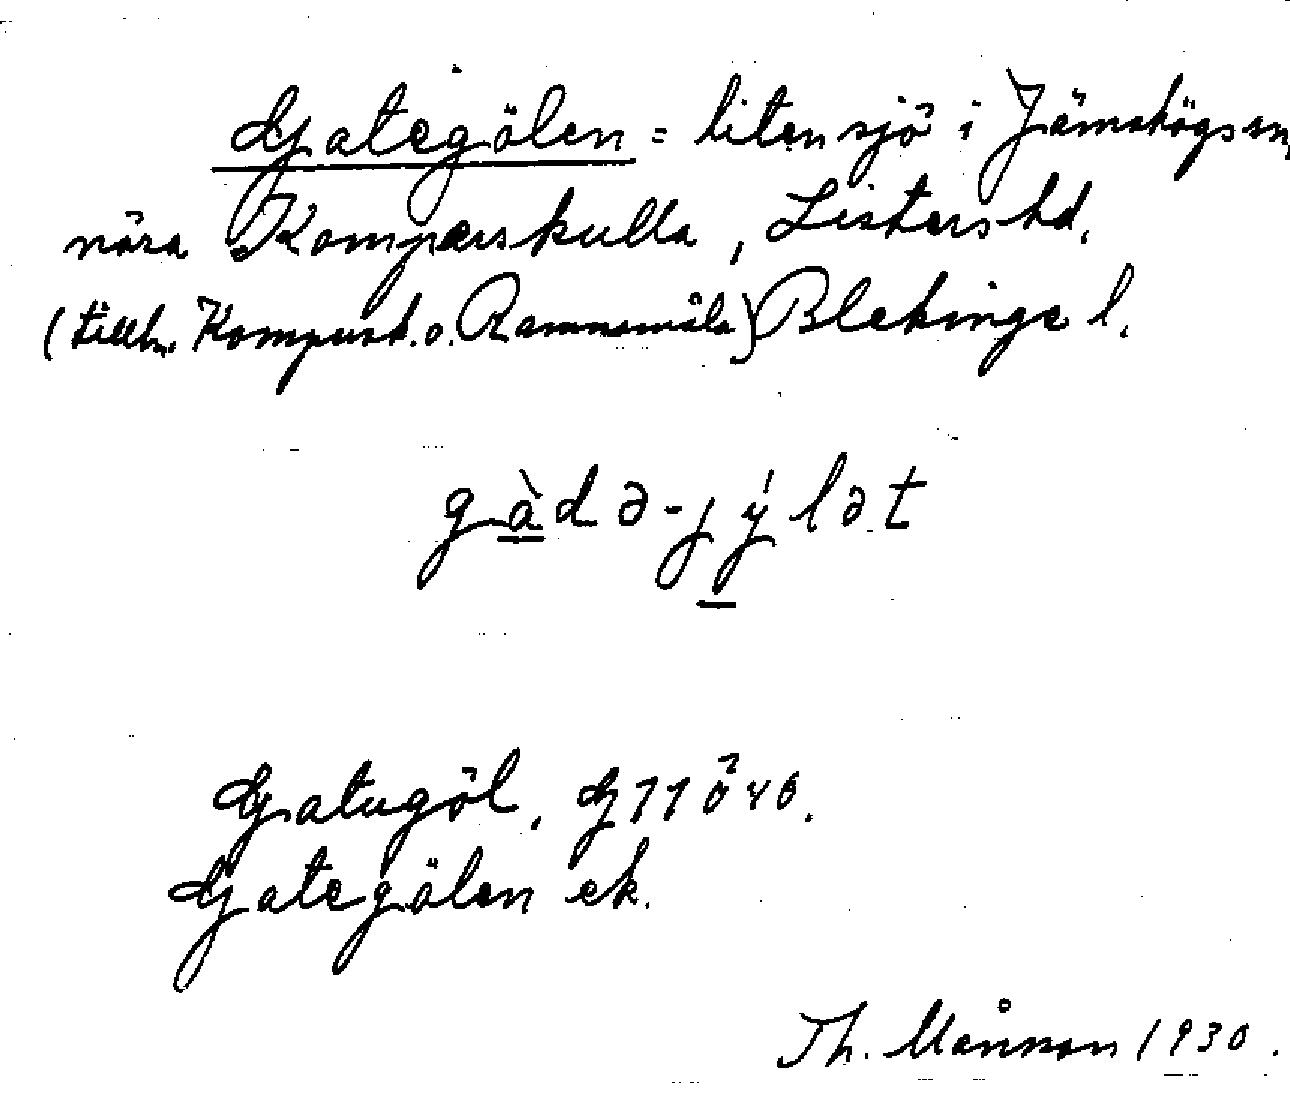 Gategölen = liten sjö i Jämshögs sn,
nära Komperskulla, Listers hd.
(tillh. Kompersk. o. Rammsmåla) Blekinge l.
gàdə-jýlət
Gatugöl, G
Gategölen ek.
Th. Månsson 1930.